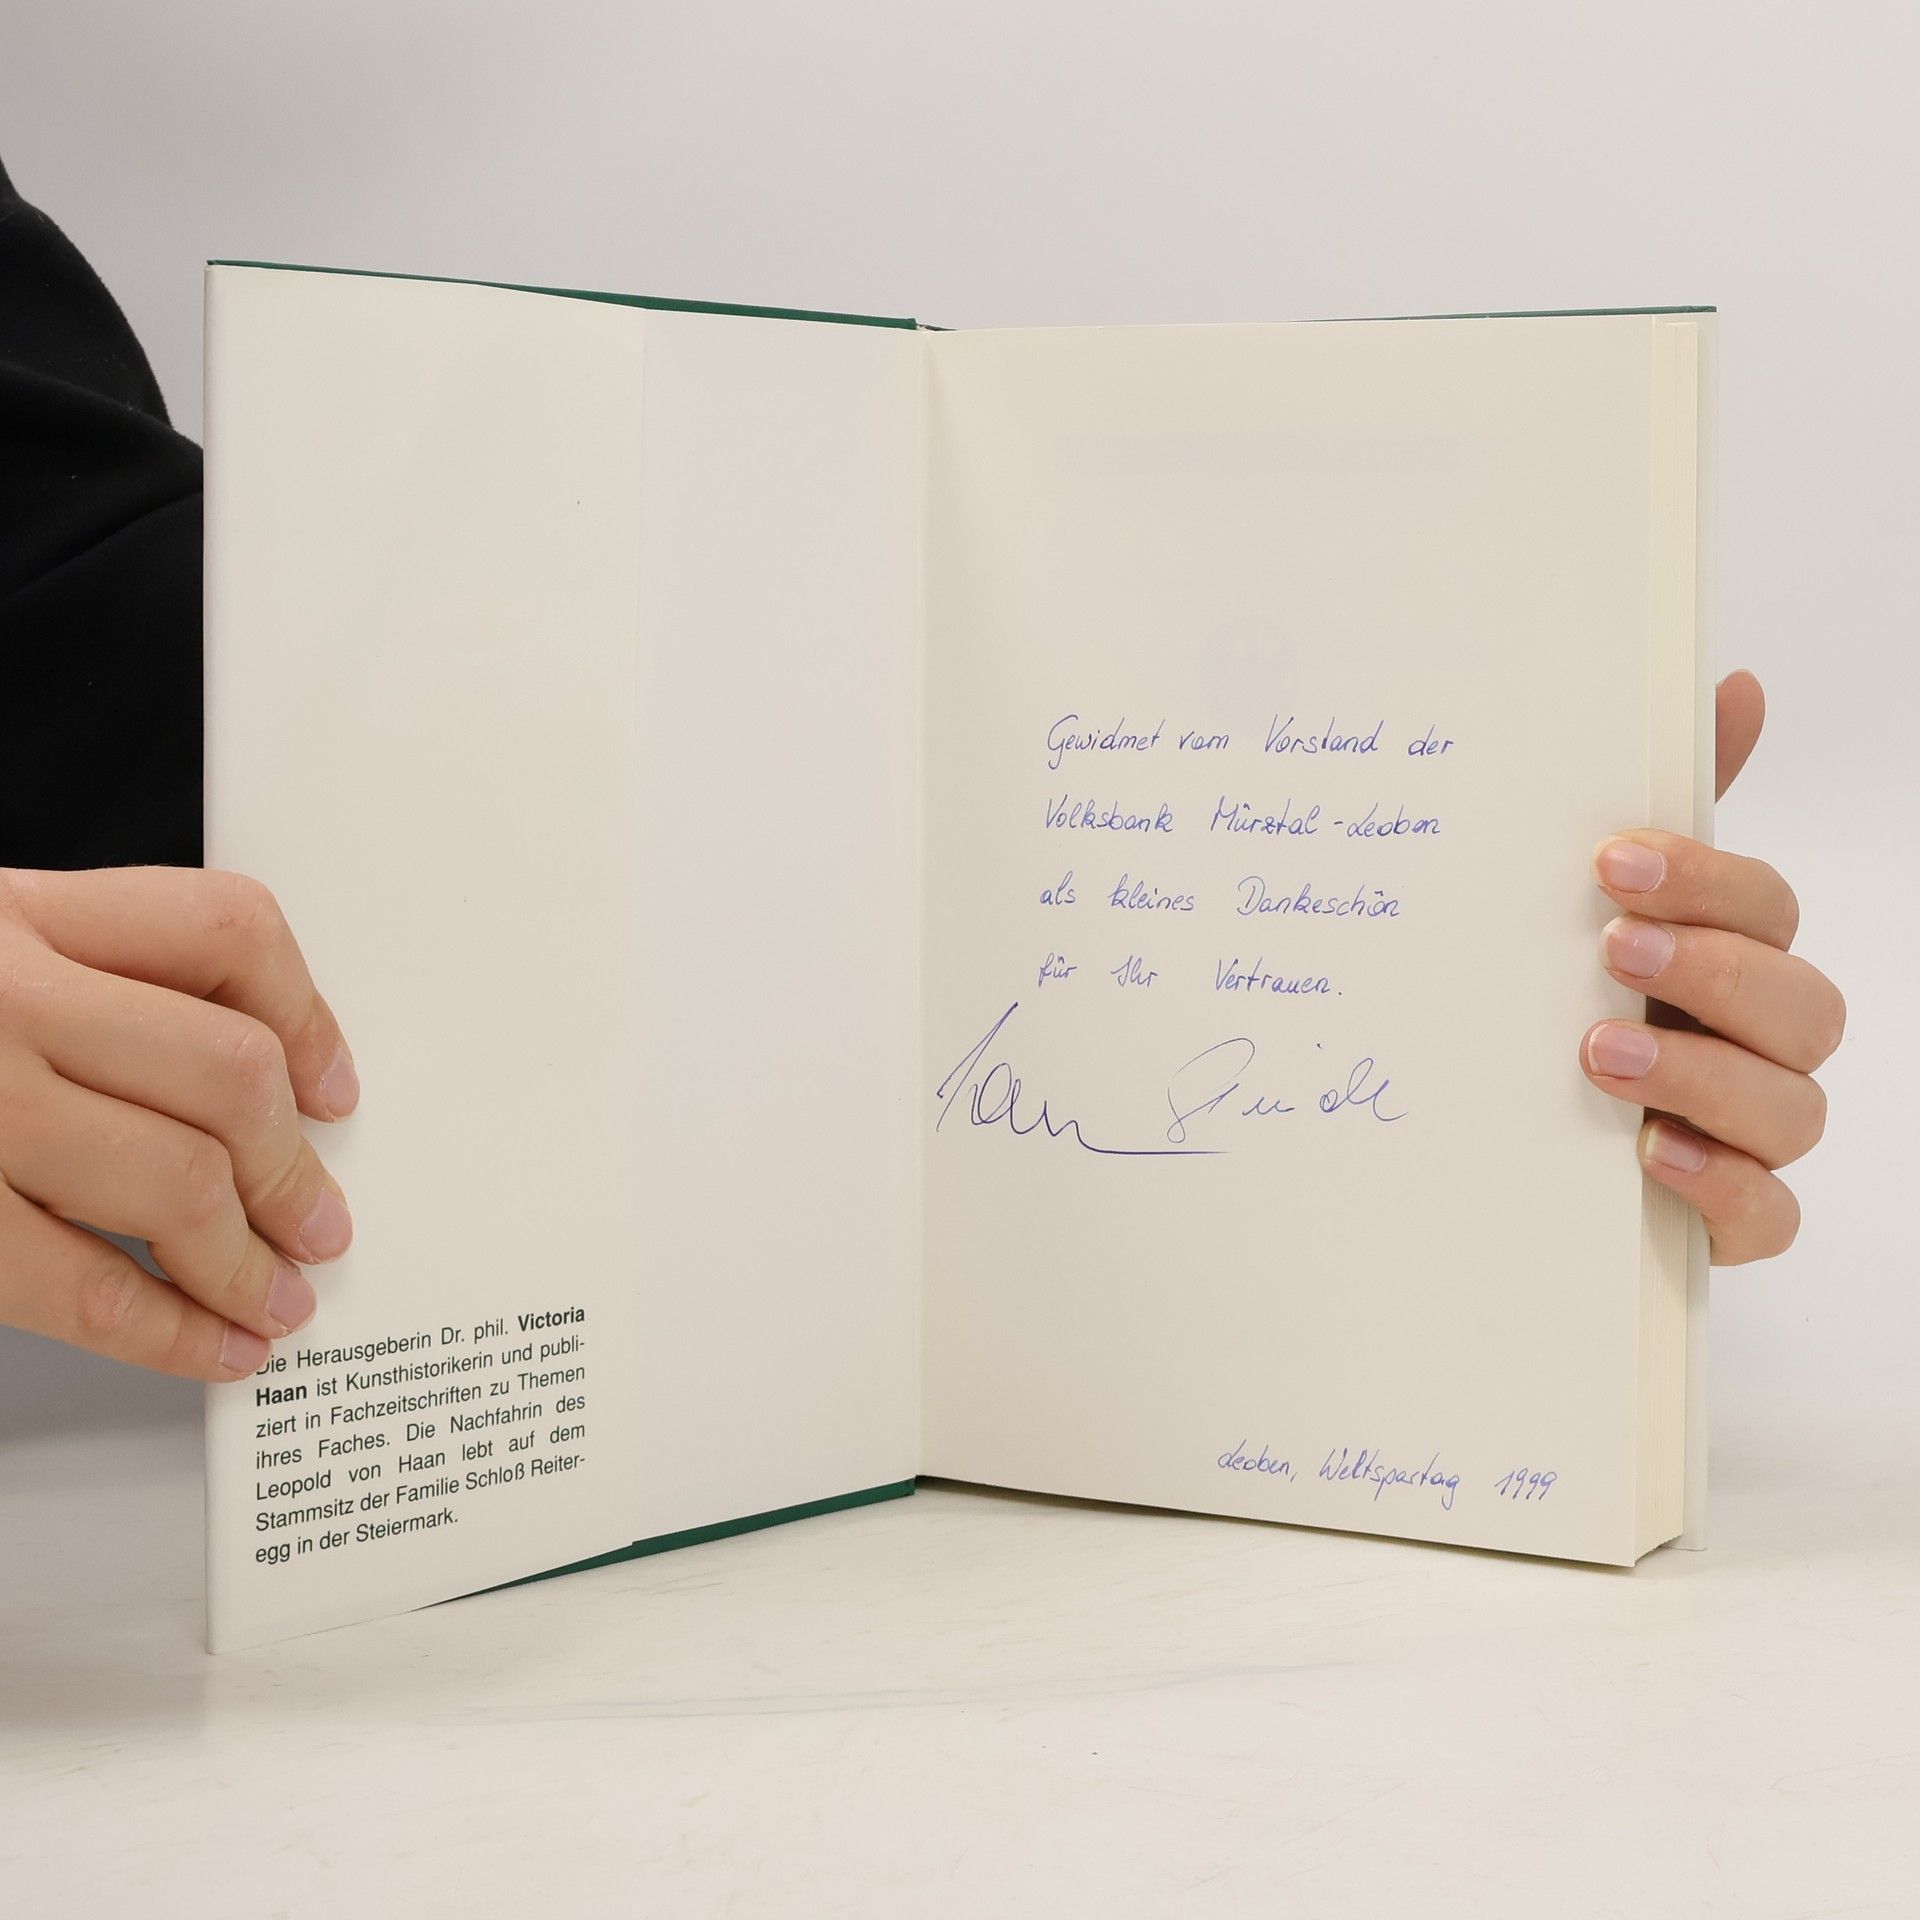 Die Herausgeberin Dr. phil. Victoria
Haan ist Kunsthistorikerin und publi-
ziert in Fachzeitschriften zu Themen
ihres Faches. Die Nachfahrin des
Leopold von Haan lebt auf dem
Stammsitz der Familie Schloß Reiter-
egg in der Steiermark.
Gewidmet vom Vorstand der
Volksbank Mürztal-Leoben
als kleines Dankeschön
für Ihr Vertrauen.
Leoben, Weltspartag 1999